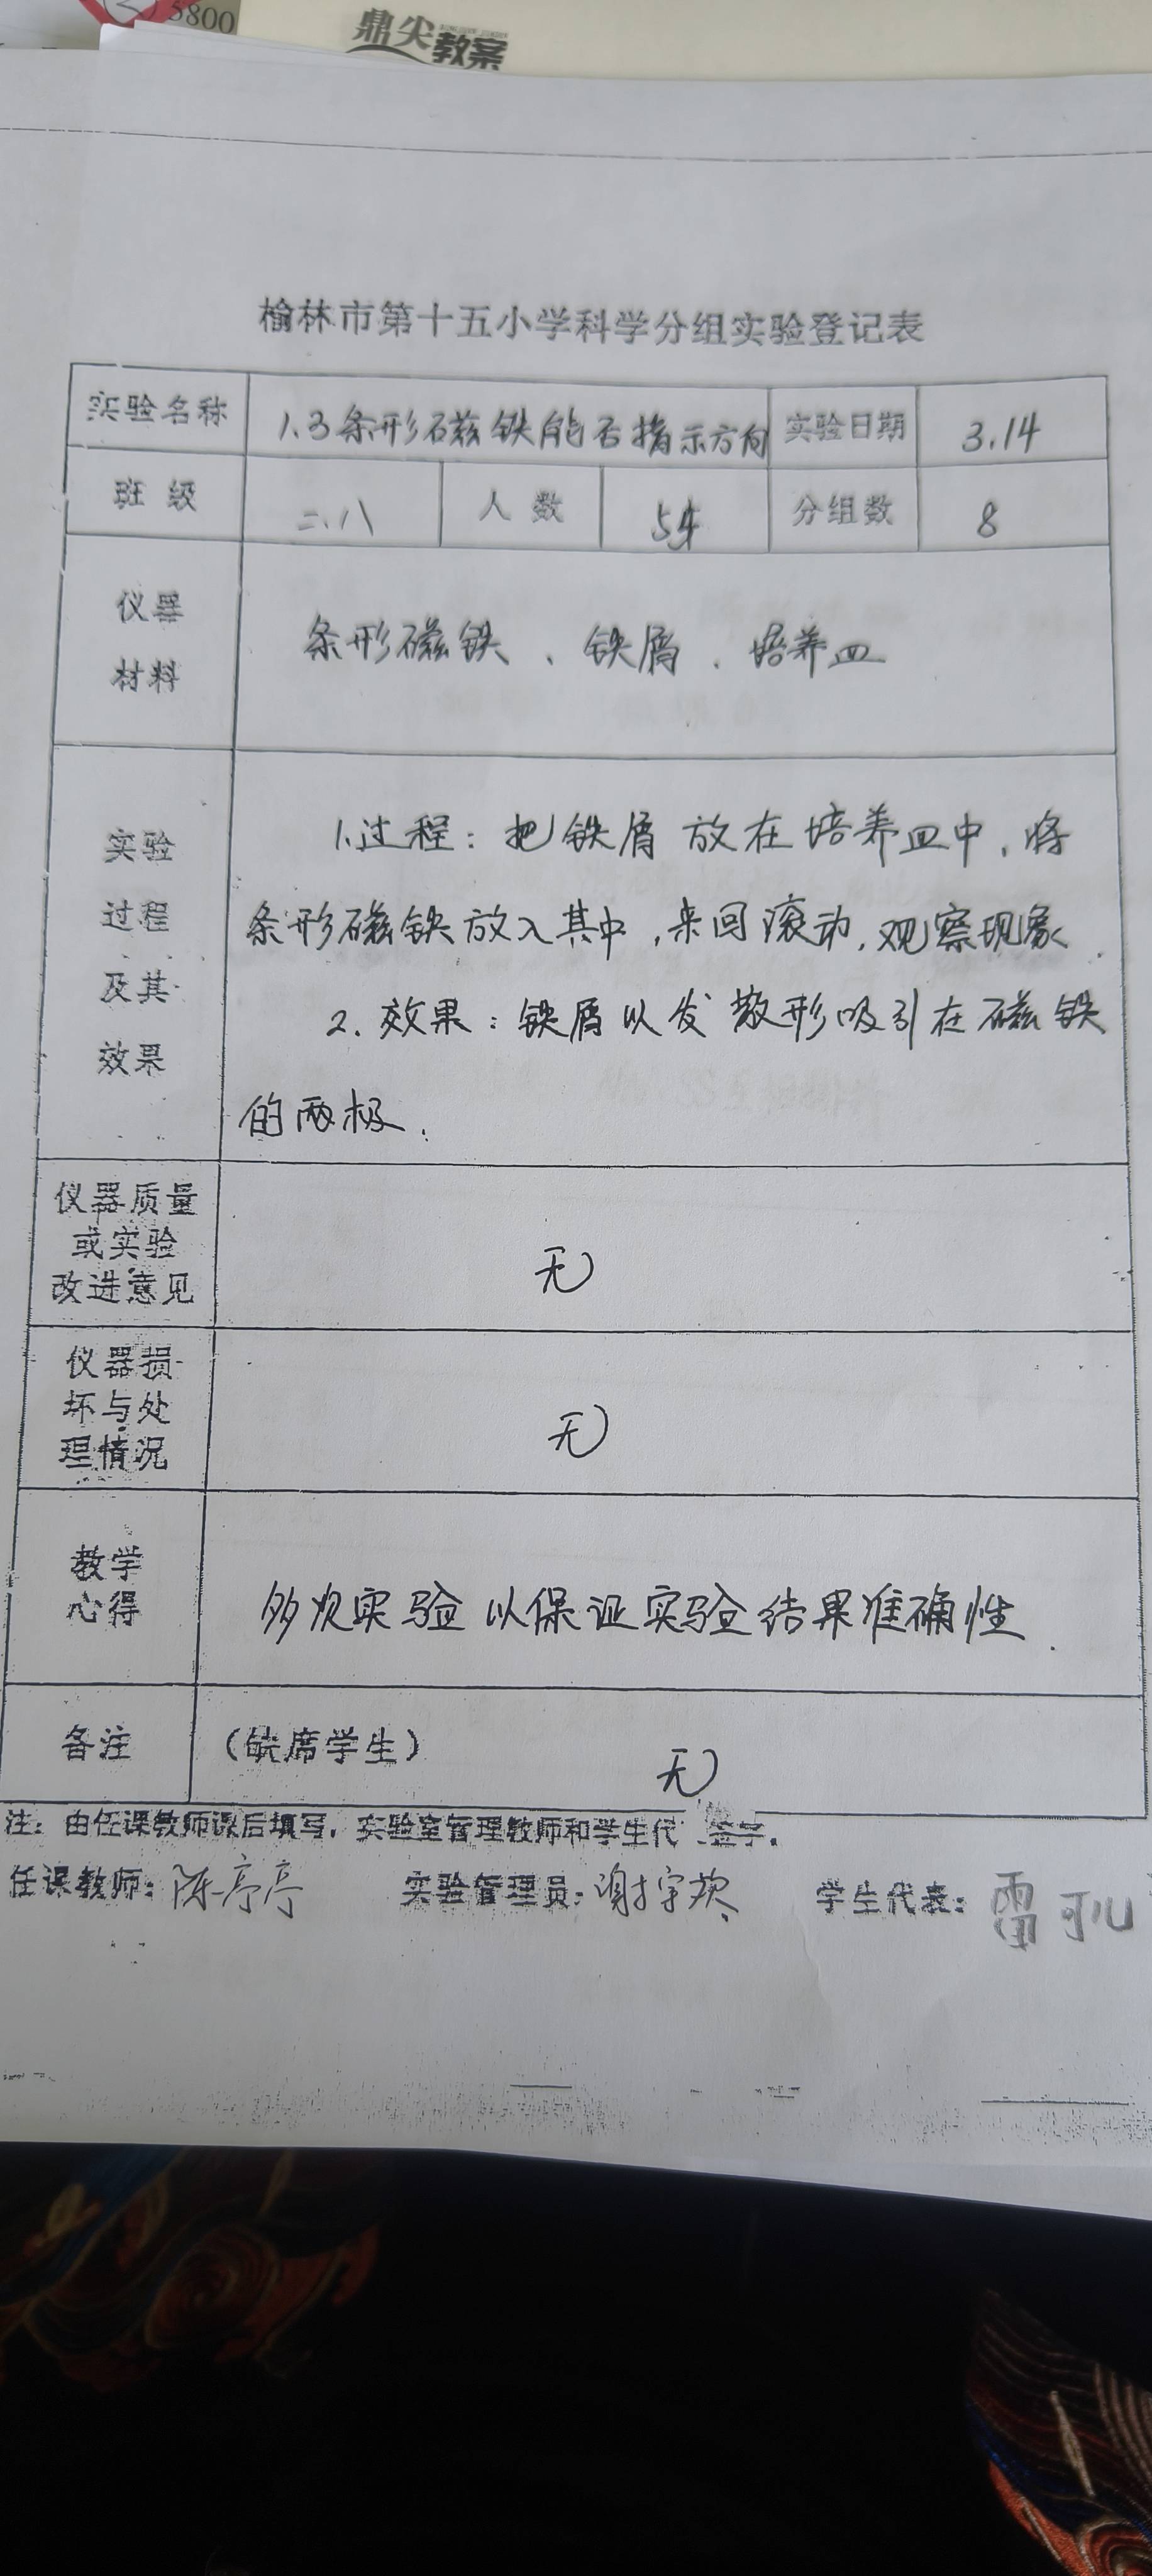 5800
鼎尖教案
榆林市第十五小学科学分组实验登记表
实验名称 1.3条形磁铁能否指示方向 实验日期 3.14
班级 二.八 人数 54 分组数 8
仪器
材料
条形磁铁、铁屑、培养皿
实验
过程
及其
效果
1.过程：把铁屑放在培养皿中，将
条形磁铁放入其中，来回滚动，观察现象.
2.效果：铁屑以发散形吸引在磁铁
的两极.
仪器质量
或实验
改进意见
无
仪器损
坏与处
理情况
无
教学
心得
多次实验以保证实验结果准确性.
备注 （缺席学生） 无
注：由任课教师课后填写，实验室管理教师和学生代 签字。
任课教师：陈亭亭 实验管理员：谢宇欢 学生代表：雷可儿